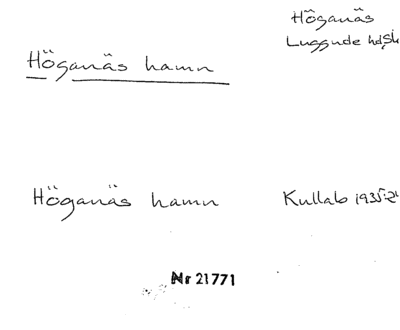 Höganäs
Luggude hd,sk
Höganäs hamn
Höganäs hamn Kullab 1935:24
Nr 21771